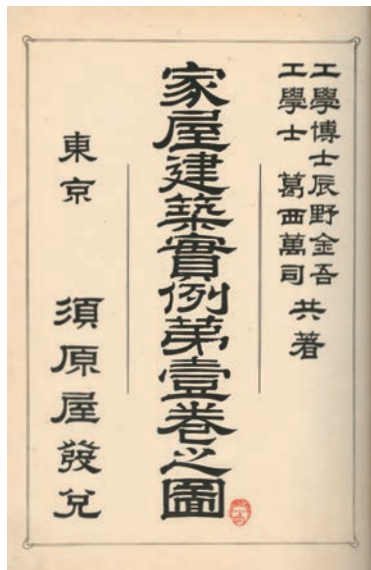 工學博士辰野金吾
工學士 葛西萬司
共著
家屋建築實例第壹卷之圖
東京 須原屋發兌